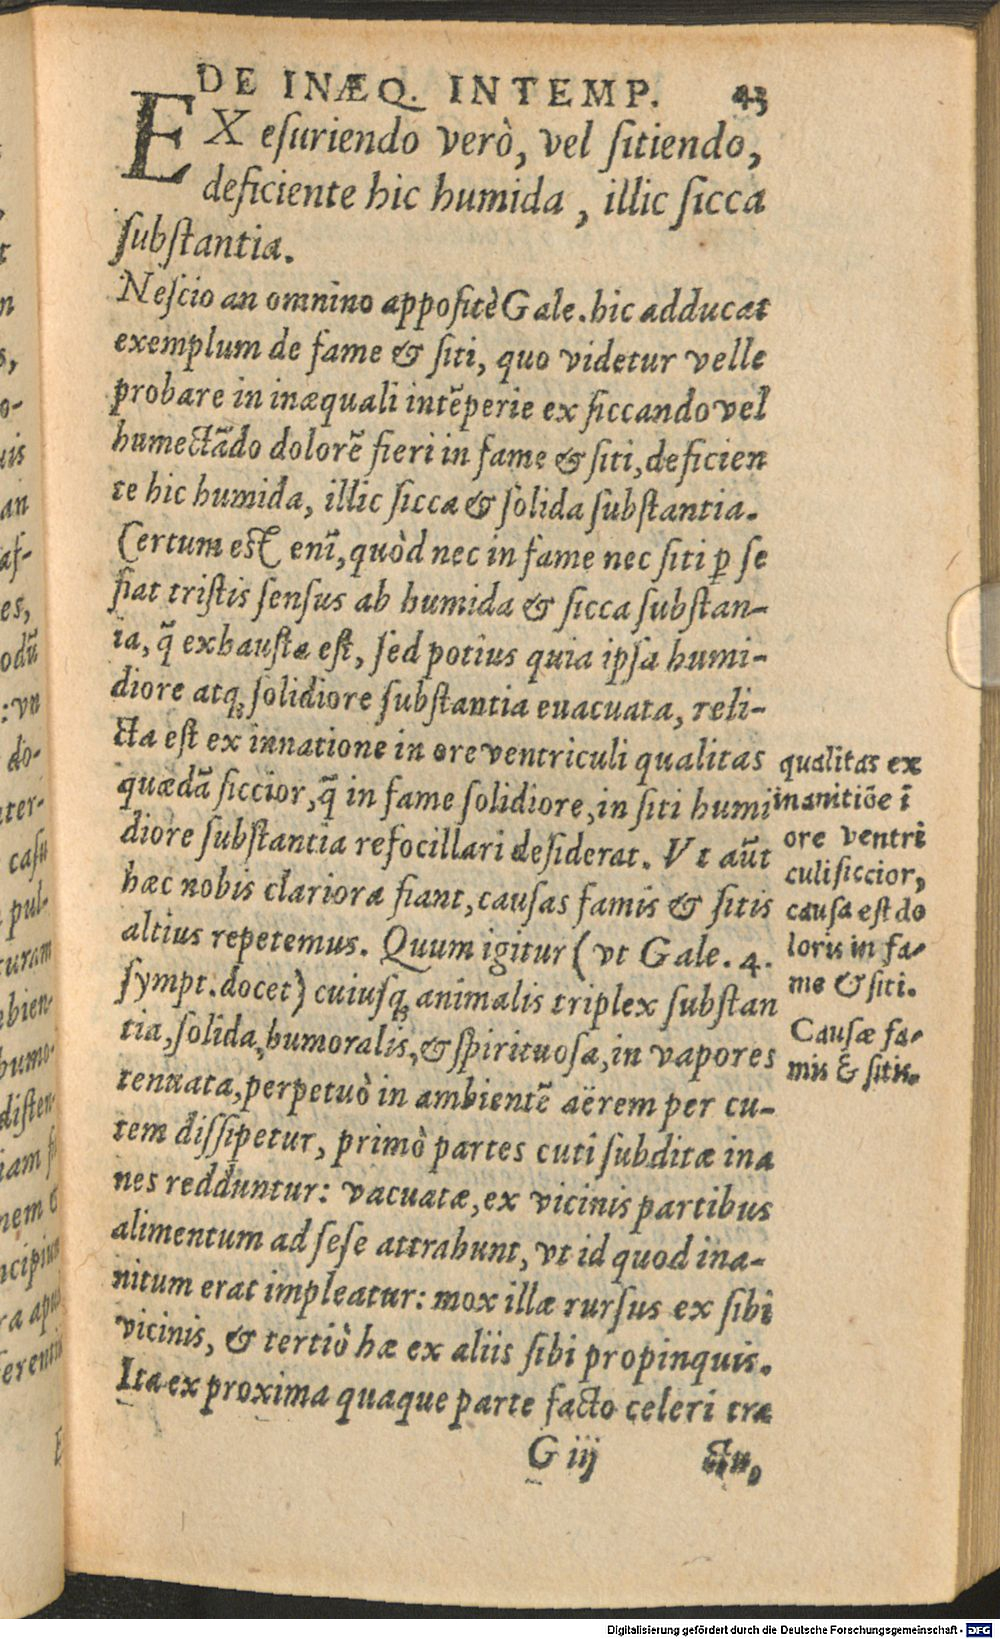 DE INÆQ. INTEMP. 43
EX eſuriendo verò, vel ſitiendo,
deficiente hic humida, illic ſicca
ſubſtantia.
Neſcio an omnino appoſitè Gale. hic adducat
exemplum de fame & ſiti, quo videtur velle
probare in inæquali intẽperie ex ſiccando vel
humectãdo dolorẽ fieri in fame & ſiti, deficien
te hic humida, illic ſicca & ſolida ſubſtantia.
Certum eſt enĩ, quòd nec in fame nec ſiti ꝑ ſe
fiat triſtis ſenſus ab humida & ſicca ſubſtan-
ia, q̃ exhauſta eſt, ſed potius quia ipſa humi-
diore atqꝫ ſolidiore ſubſtantia euacuata, reli-
cta eſt ex innatione in ore ventriculi qualitas
quædã ſiccior, q̃ in fame ſolidiore, in ſiti humi
diore ſubſtantia refocillari deſiderat. Vt aũt
hæc nobis clariora fiant, cauſas famis & ſitis
altius repetemus. Quum igitur (vt Gale. 4.
ſympt. docet) cuiuſqꝫ animalis triplex ſubſtan
tia, ſolida, humoralis, & ſpirituoſa, in vapores
tenuata, perpetuò in ambientẽ aërem per cu-
tem diſſipetur, primò partes cuti ſubditæ ina
nes redduntur: vacuatæ, ex vicinis partibus
alimentum ad ſeſe attrahunt, vt id quod ina-
nitum erat impleatur: mox illæ rurſus ex ſibi
vicinis, & tertiò hæ ex aliis ſibi propinquis.
Ita ex proxima quaque parte facto celeri tra
G iij ctu,
qualitas ex
inanitiõe ĩ
ore ventri
culi ſiccior,
cauſa eſt do
loris in fa-
me & ſiti.
Cauſæ fa-
mis & ſitis.
Digitalisierung gefördert durch die Deutsche Forschungsgemeinschaft - DFG